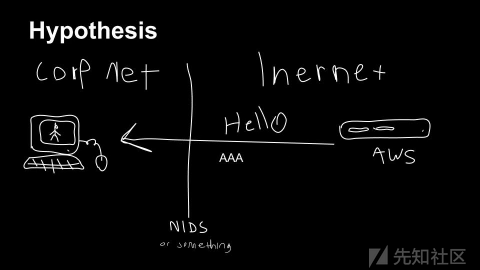 Hypothesis
Corp Net
Inernet
Hello
AAA
AWS
NIDS
or something
先知社区